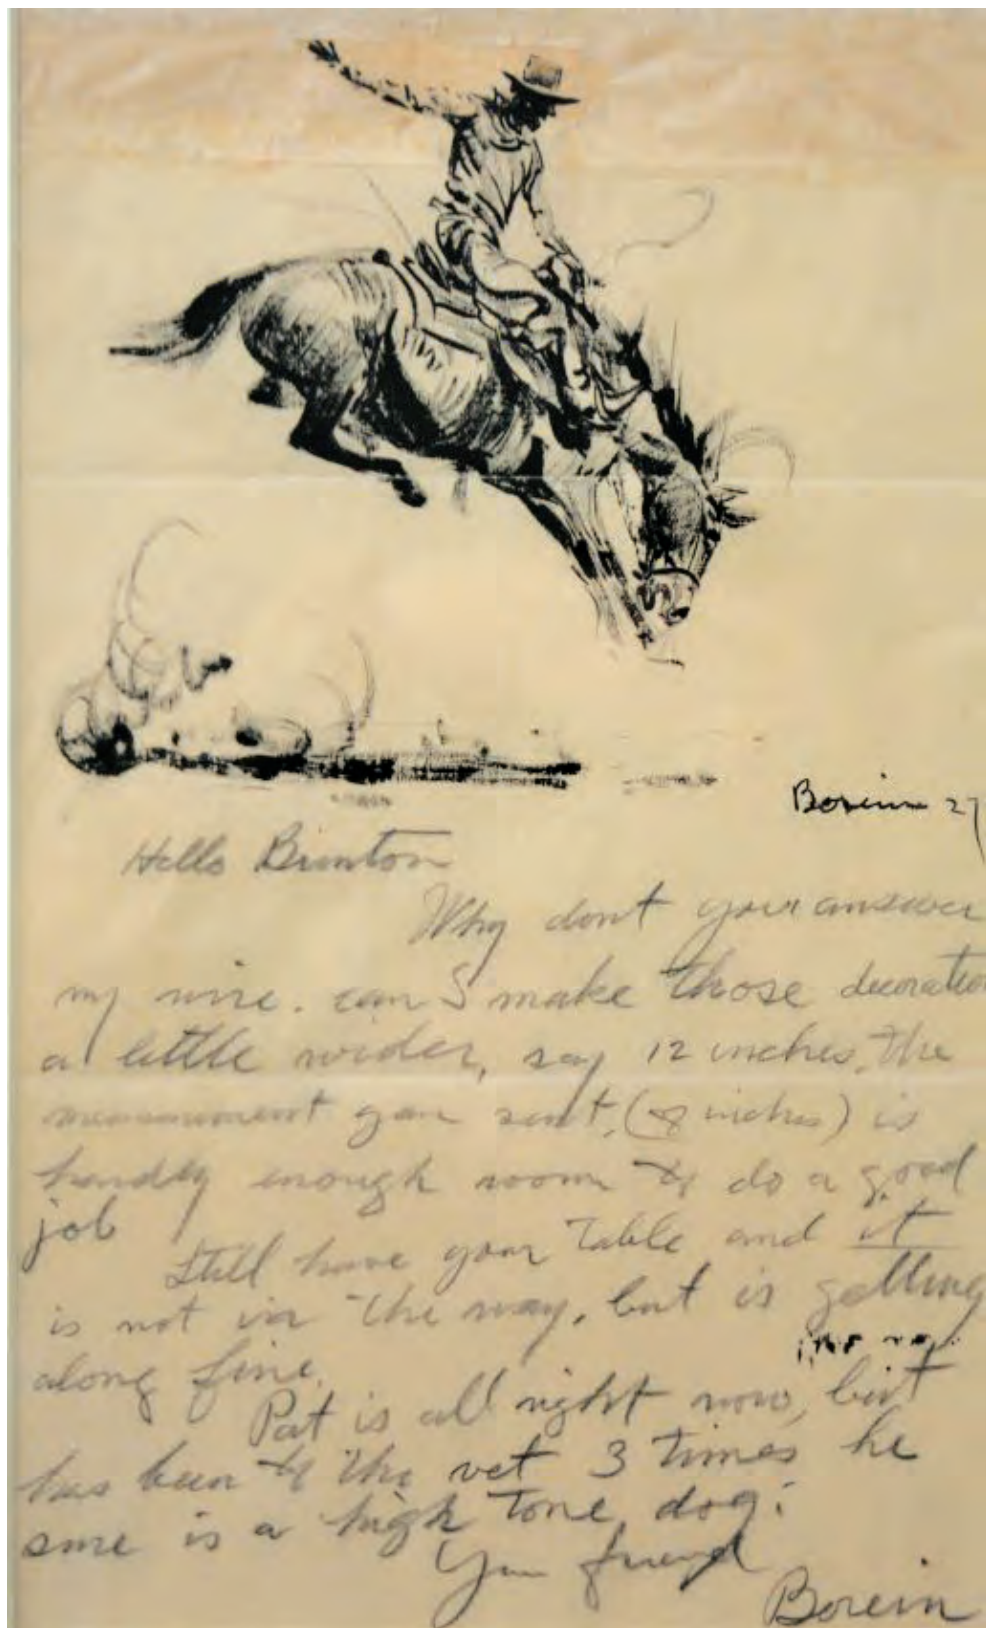 Borein 27
Hello Brinton
Why dont your answer
my wire. can I make those decoration
a little wider, say 12 inches, the
measurement you sent, (8 inches) is
hardly enough room to do a good
job
Still have your Table and it
is not in the way, but is getting
along fine.
Pat is all right now, but
has been to the vet 3 times he
sure is a high tone dog.
Your friend
Borein